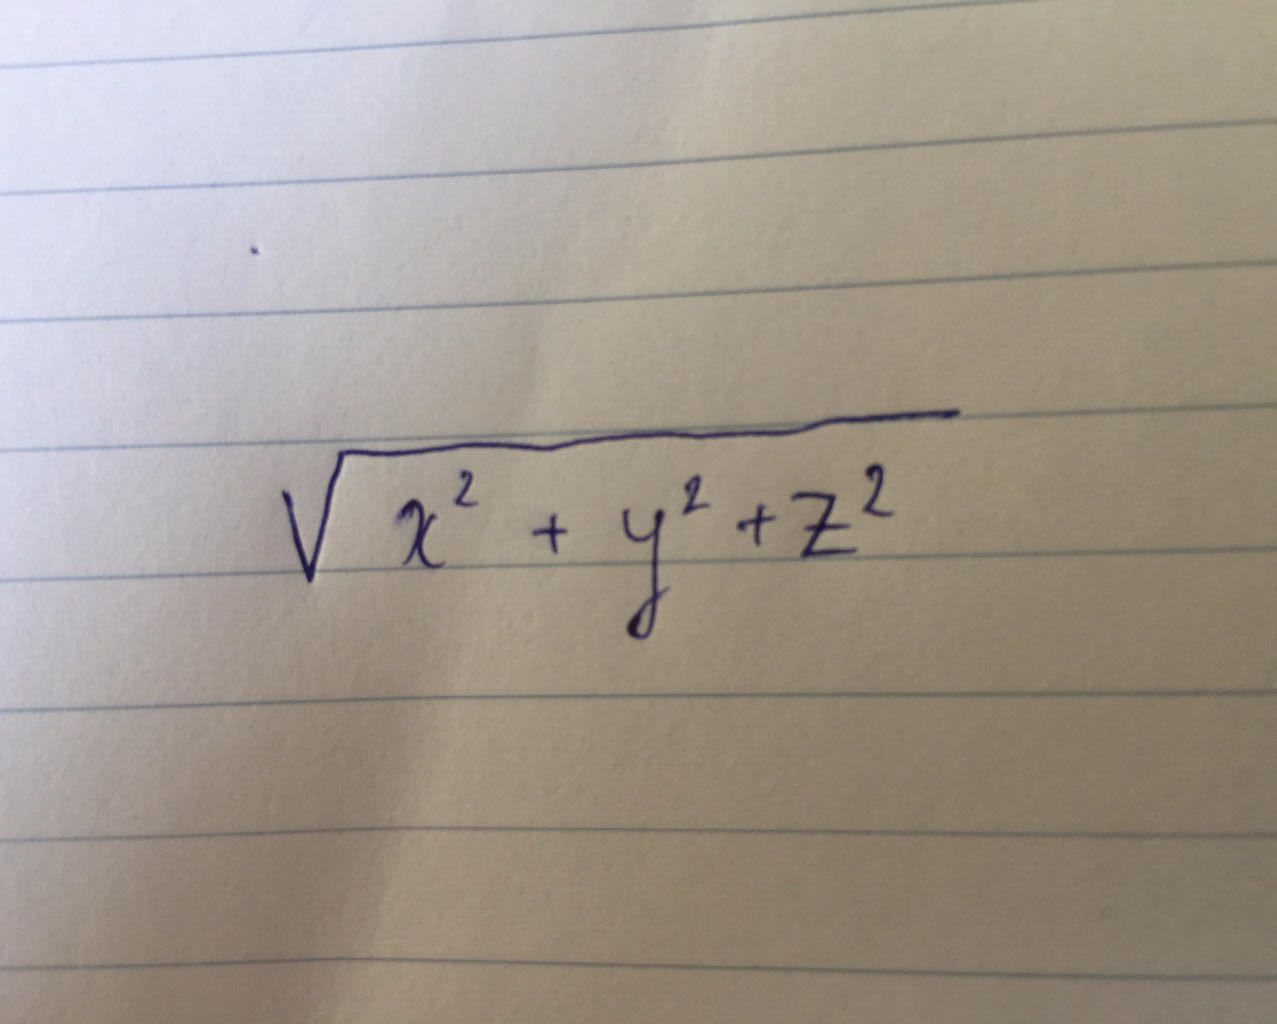 √(x² + y² + z²)